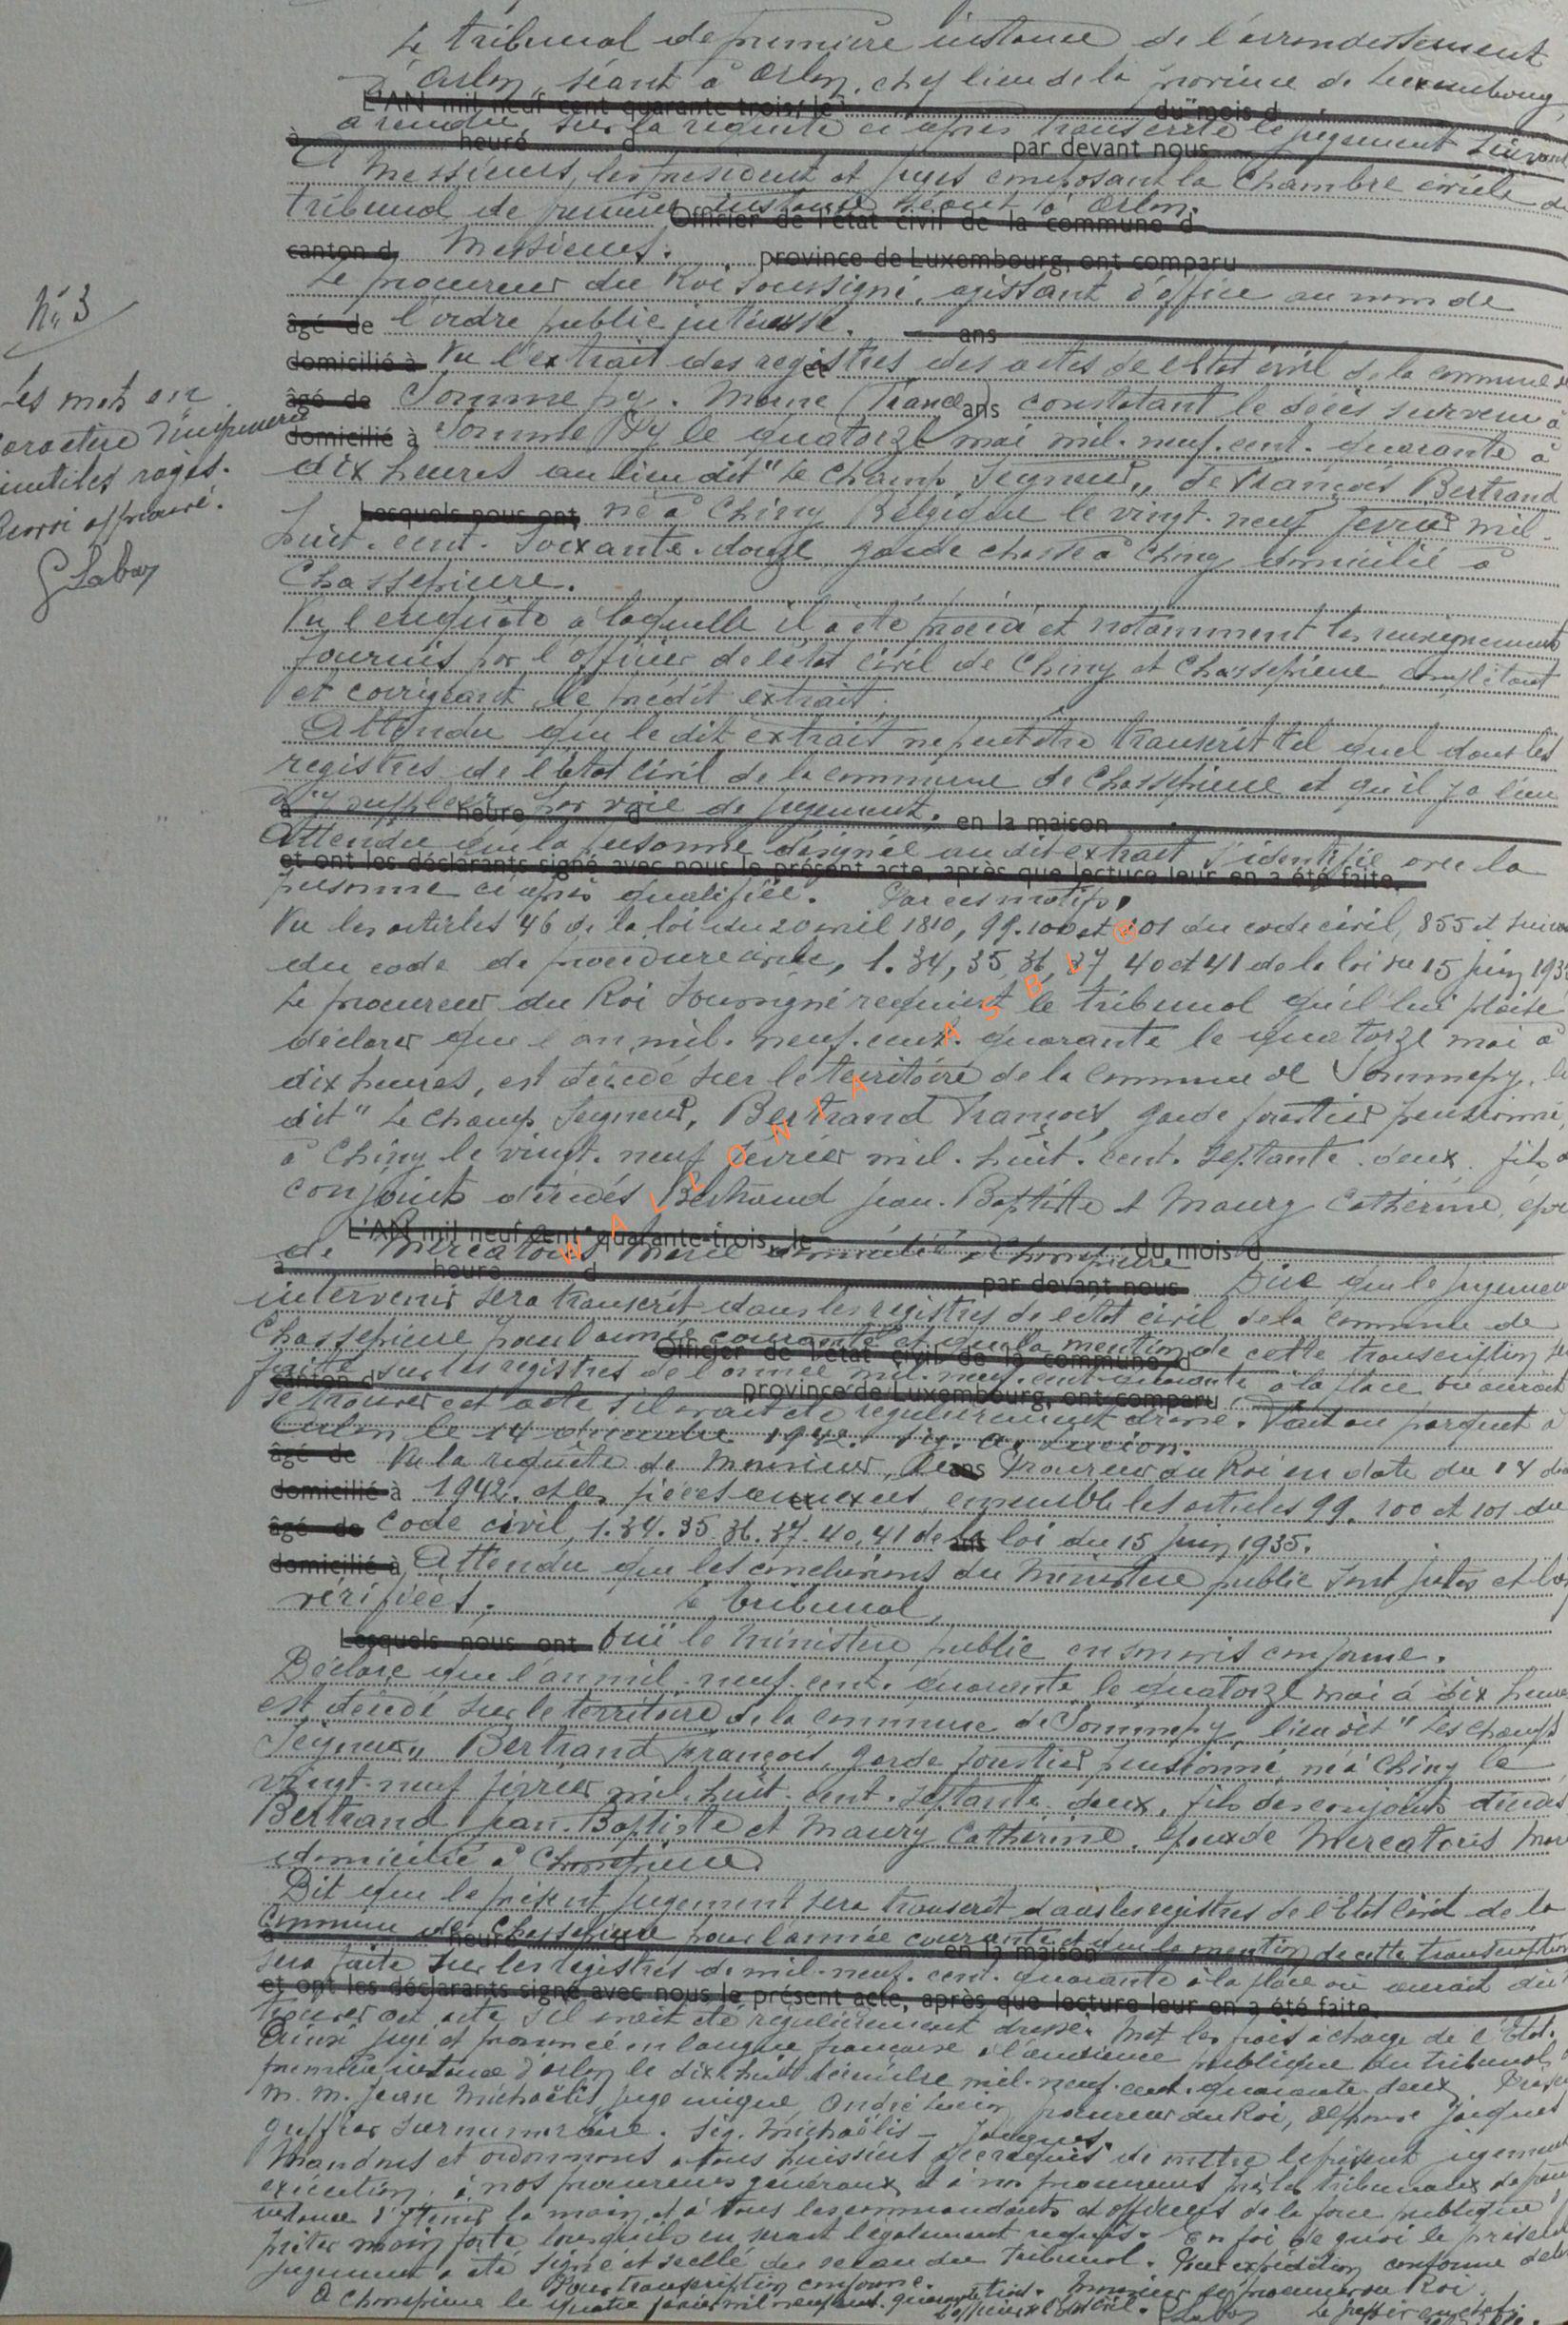 Le tribunal de première instance de l'arrondissement
d'Arlon, séant à Arlon, chef lieu de la province de Luxembourg,
L'AN mil neuf cent quarante-trois, le du mois d
a rendu sur la requête ci après transcrite le jugement suivant
à heure d par devant nous
A Messieurs, les président et juges composant la Chambre civile du
tribunal de première instance séant à Arlon.
Officier de l'état civil de la commune d
canton d Messieurs. province de Luxembourg, ont comparu
Le procureur du Roi soussigné, agissant d'office au nom de
N° 3
âgé de l'ordre public intéressé. ans
domicilié à Vu l'extrait des registres des actes de l'état civil de la commune de
et
âgé de Sommepy. Marne (France) ans constatant le décès survenu à
domicilié à Sommepy le quatorze mai mil. neuf. cent. quarante à
Les mots en
caractère d'imprimerie
inutiles rayés.
Lu et approuvé.
dix heures au lieu dit "Le Champ Seigneur,, de François Bertrand
Lesquels nous ont né à Chiny Belgique le vingt. neuf février mil.
huit. cent. soixante. douze garde chasse à Chiny domicilié à
Chassepierre.
Vu l'enquête à laquelle il a été procédé et notamment les renseignements
fournis par l'officier de l'état civil de Chiny et Chassepierre complétant
et corrigeant le prédit extrait.
Attendu que le dit extrait ne peut être transcrit tel quel dans les
registres de l'état civil de la commune de Chassepierre et qu'il y a lieu
d'y suppléer par voie de jugement.
à heure d en la maison
Attendu que la personne désignée au dit extrait s'identifie avec la
et ont les déclarants signé avec nous le présent acte, après que lecture leur en a été faite.
personne ci après qualifiée. Par ces motifs,
Vu les articles 46 de la loi du 20 avril 1810, 99. 100 et 101 du code civil, 855 et suivants
du code de procédure civile, 1. 34, 35, 36, 37, 40 et 41 de la loi du 15 juin 1935
Le procureur du Roi soussigné requiert le tribunal qu'il lui plaise
déclarer que l'an mil. neuf. cent. quarante le quatorze mai à
dix heures, est décédé sur le territoire de la commune de Sommepy, lieu
dit "Le Champ Seigneur, Bertrand François, garde forestier pensionné,
à Chiny le vingt. neuf février mil. huit. cent. septante. deux. fils des
conjoints décédés Bertrand Jean-Baptiste et Maury Catherine, époux
WALLONIA ASBL ®
L'AN mil neuf cent quarante-trois, le du mois d
de Mercatoris Marie domicilié à Chassepierre
à heure d par devant nous Dire que le jugement
intervenir sera transcrit dans les registres de l'état civil de la commune de
Chassepierre pour l'année courante et que la mention de cette transcription sera
Officier de l'état civil de la commune d
faite sur les registres de l'année mil. neuf. cent quarante à la place où aurait
canton d province de Luxembourg, ont comparu
se trouver cet acte s'il avait été régulièrement dressé. Fait au parquet à
Arlon le 14 décembre 1942. Sig. A. Lucion.
âgé de Vu la requête de Monsieur, le ans Procureur du Roi en date du 14 déc
domicilié à 1942. et les pièces annexées, ensemble les articles 99. 100 et 101 du
et
âgé de Code civil, 1. 34. 35. 36. 37. 40. 41 de la ans loi du 15 juin 1935.
domicilié à Attendu que les conclusions du Ministère public sont justes et bien
vérifiées. Le tribunal,
Lesquels nous ont Ouï le Ministère public en son avis conforme.
Déclare que l'an mil. neuf. cent. quarante le quatorze mai à dix heures
est décédé sur le territoire de la commune de Sommepy, lieu dit "Les champs
Seigneur,, Bertrand François, garde forestier pensionné, né à Chiny le
vingt. neuf février mil. huit. cent. septante. deux, fils des conjoints décédés
Bertrand Jean-Baptiste et Maury Catherine, époux de Mercatoris Marie
domicilié à Chassepierre.
Dit que le présent jugement sera transcrit dans les registres de l'Etat Civil de la
Commune de Chassepierre pour l'année courante et que la mention de cette transcription
à heure d en la maison
sera faite sur les registres de mil. neuf. cent. quarante à la place où aurait dû
et ont les déclarants signé avec nous le présent acte, après que lecture leur en a été faite.
trouver cet acte s'il avait été régulièrement dressé. Met les frais à charge de l'Etat.
Ainsi jugé et prononcé en langue française à l'audience publique du tribunal
première instance d'Arlon le dix huit décembre mil. neuf. cent. quarante. deux.
M. M. Jean Michaëlis juge unique, André Lucion procureur du Roi, Alphonse Jacques
greffier surnuméraire. Sig. Michaëlis - Jacques.
Mandons et ordonnons à tous huissiers à ce requis de mettre le présent jugement
exécution, à nos procureurs généraux et à nos procureurs près les tribunaux de première
instance d'y tenir la main, et à tous les commandants et officiers de la force publique d'y
prêter main forte lorsqu'ils en seront légalement requis. En foi de quoi le présent
jugement a été signé et scellé du sceau du tribunal. Pour expédition conforme
Pour transcription conforme. Monsieur le procureur du Roi
A Chassepierre le quatre janvier mil neuf cent. quarante trois. Le greffier en chef.
L'officier de l'état civil.